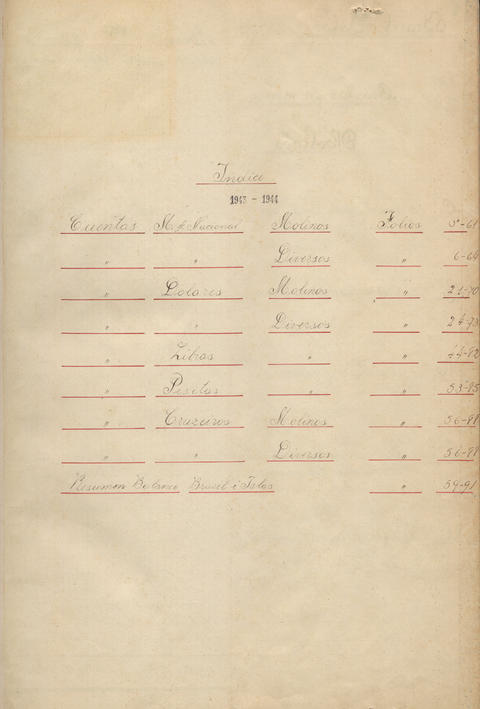 Indice
1943 - 1944
Cuentas M/ Nacional Molinos Folios 5-61
" " Diversos " 6-64
" Dolares Molinos " 21-70
" " Diversos " 24-73
" Libras " " 44-82
" Pesetas " " 53-85
" Cruzeiros Molinos " 56-88
" " Diversos " 56-88
Resumen Balance Brasil é Islas " 59-91